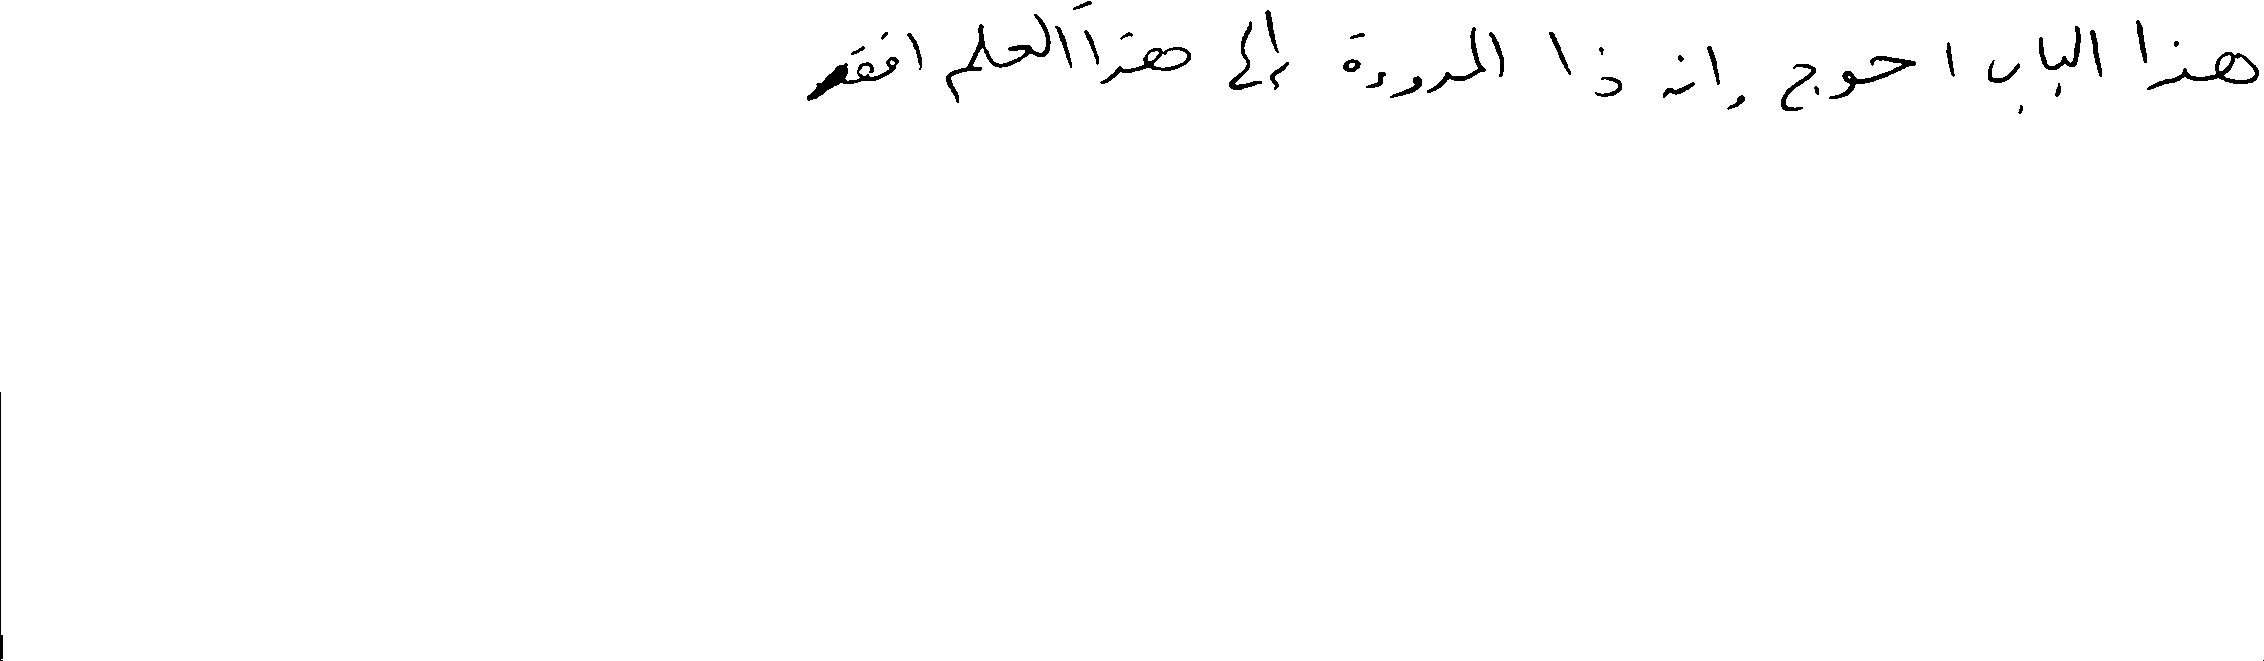 هذا الباب احوج وانه ذا المروءة إلى هذا العلم افقر